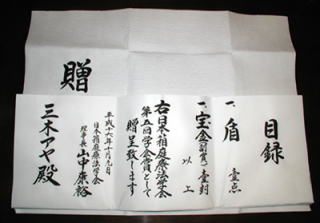 目録
一、盾 壹点
一、宝金(副賞) 壹封
以上
右日本箱庭療法学会
第五回学会賞として
贈呈致します
平成十六年十月九日
日本箱庭療法学会
理事長 山中康裕
三木アヤ殿
贈